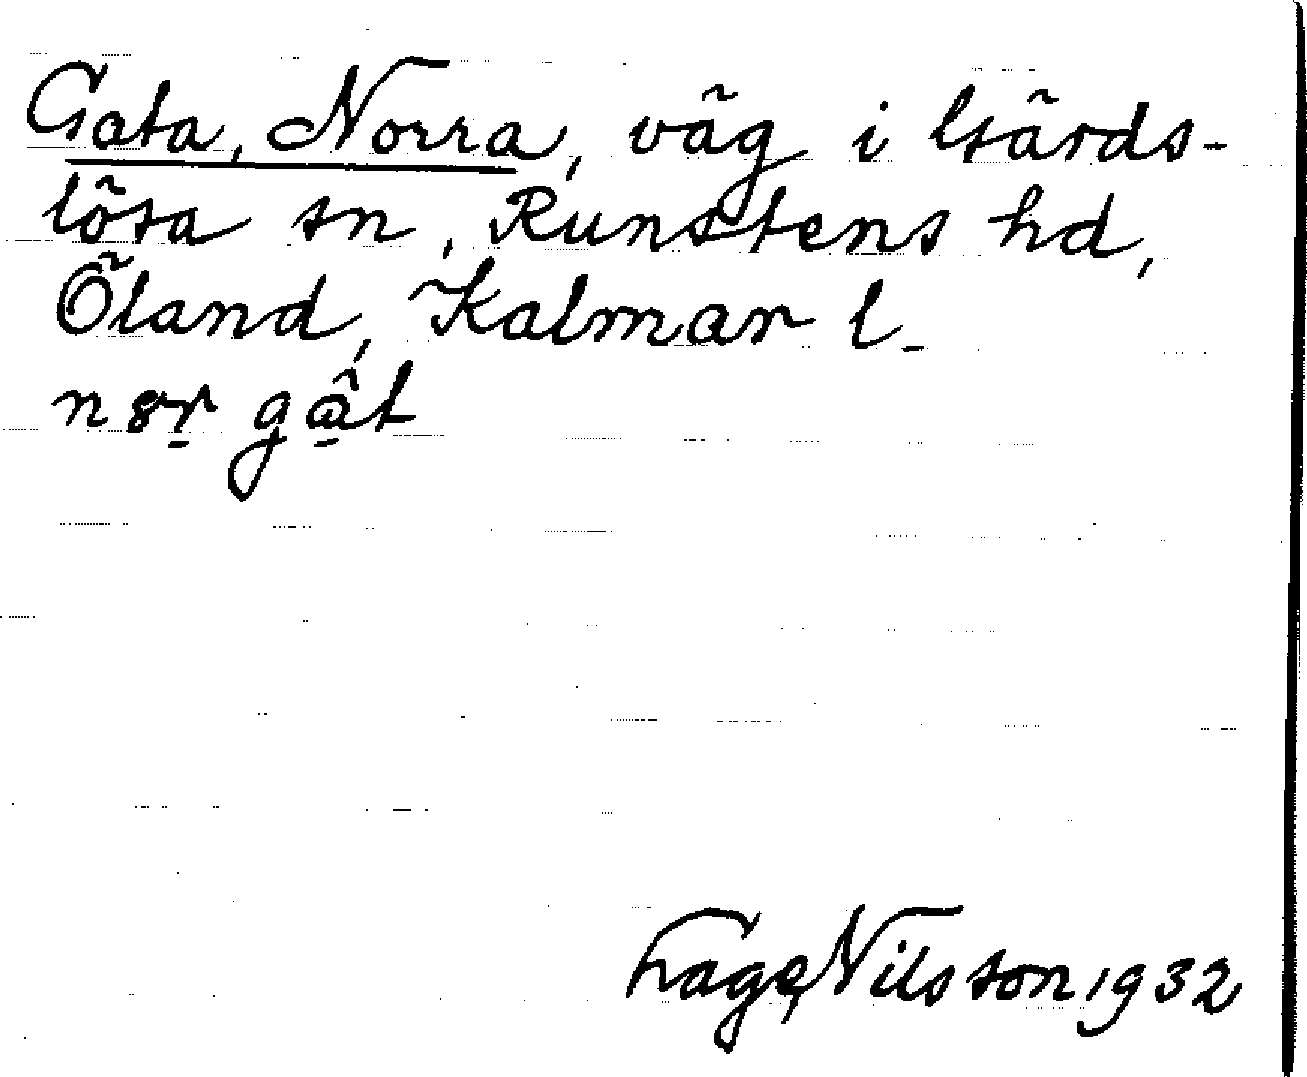 Gata, Norra, väg i Gärds-
lösa sn, Runstens hd,
Öland, Kalmar l.
Tage Nilsson 1932